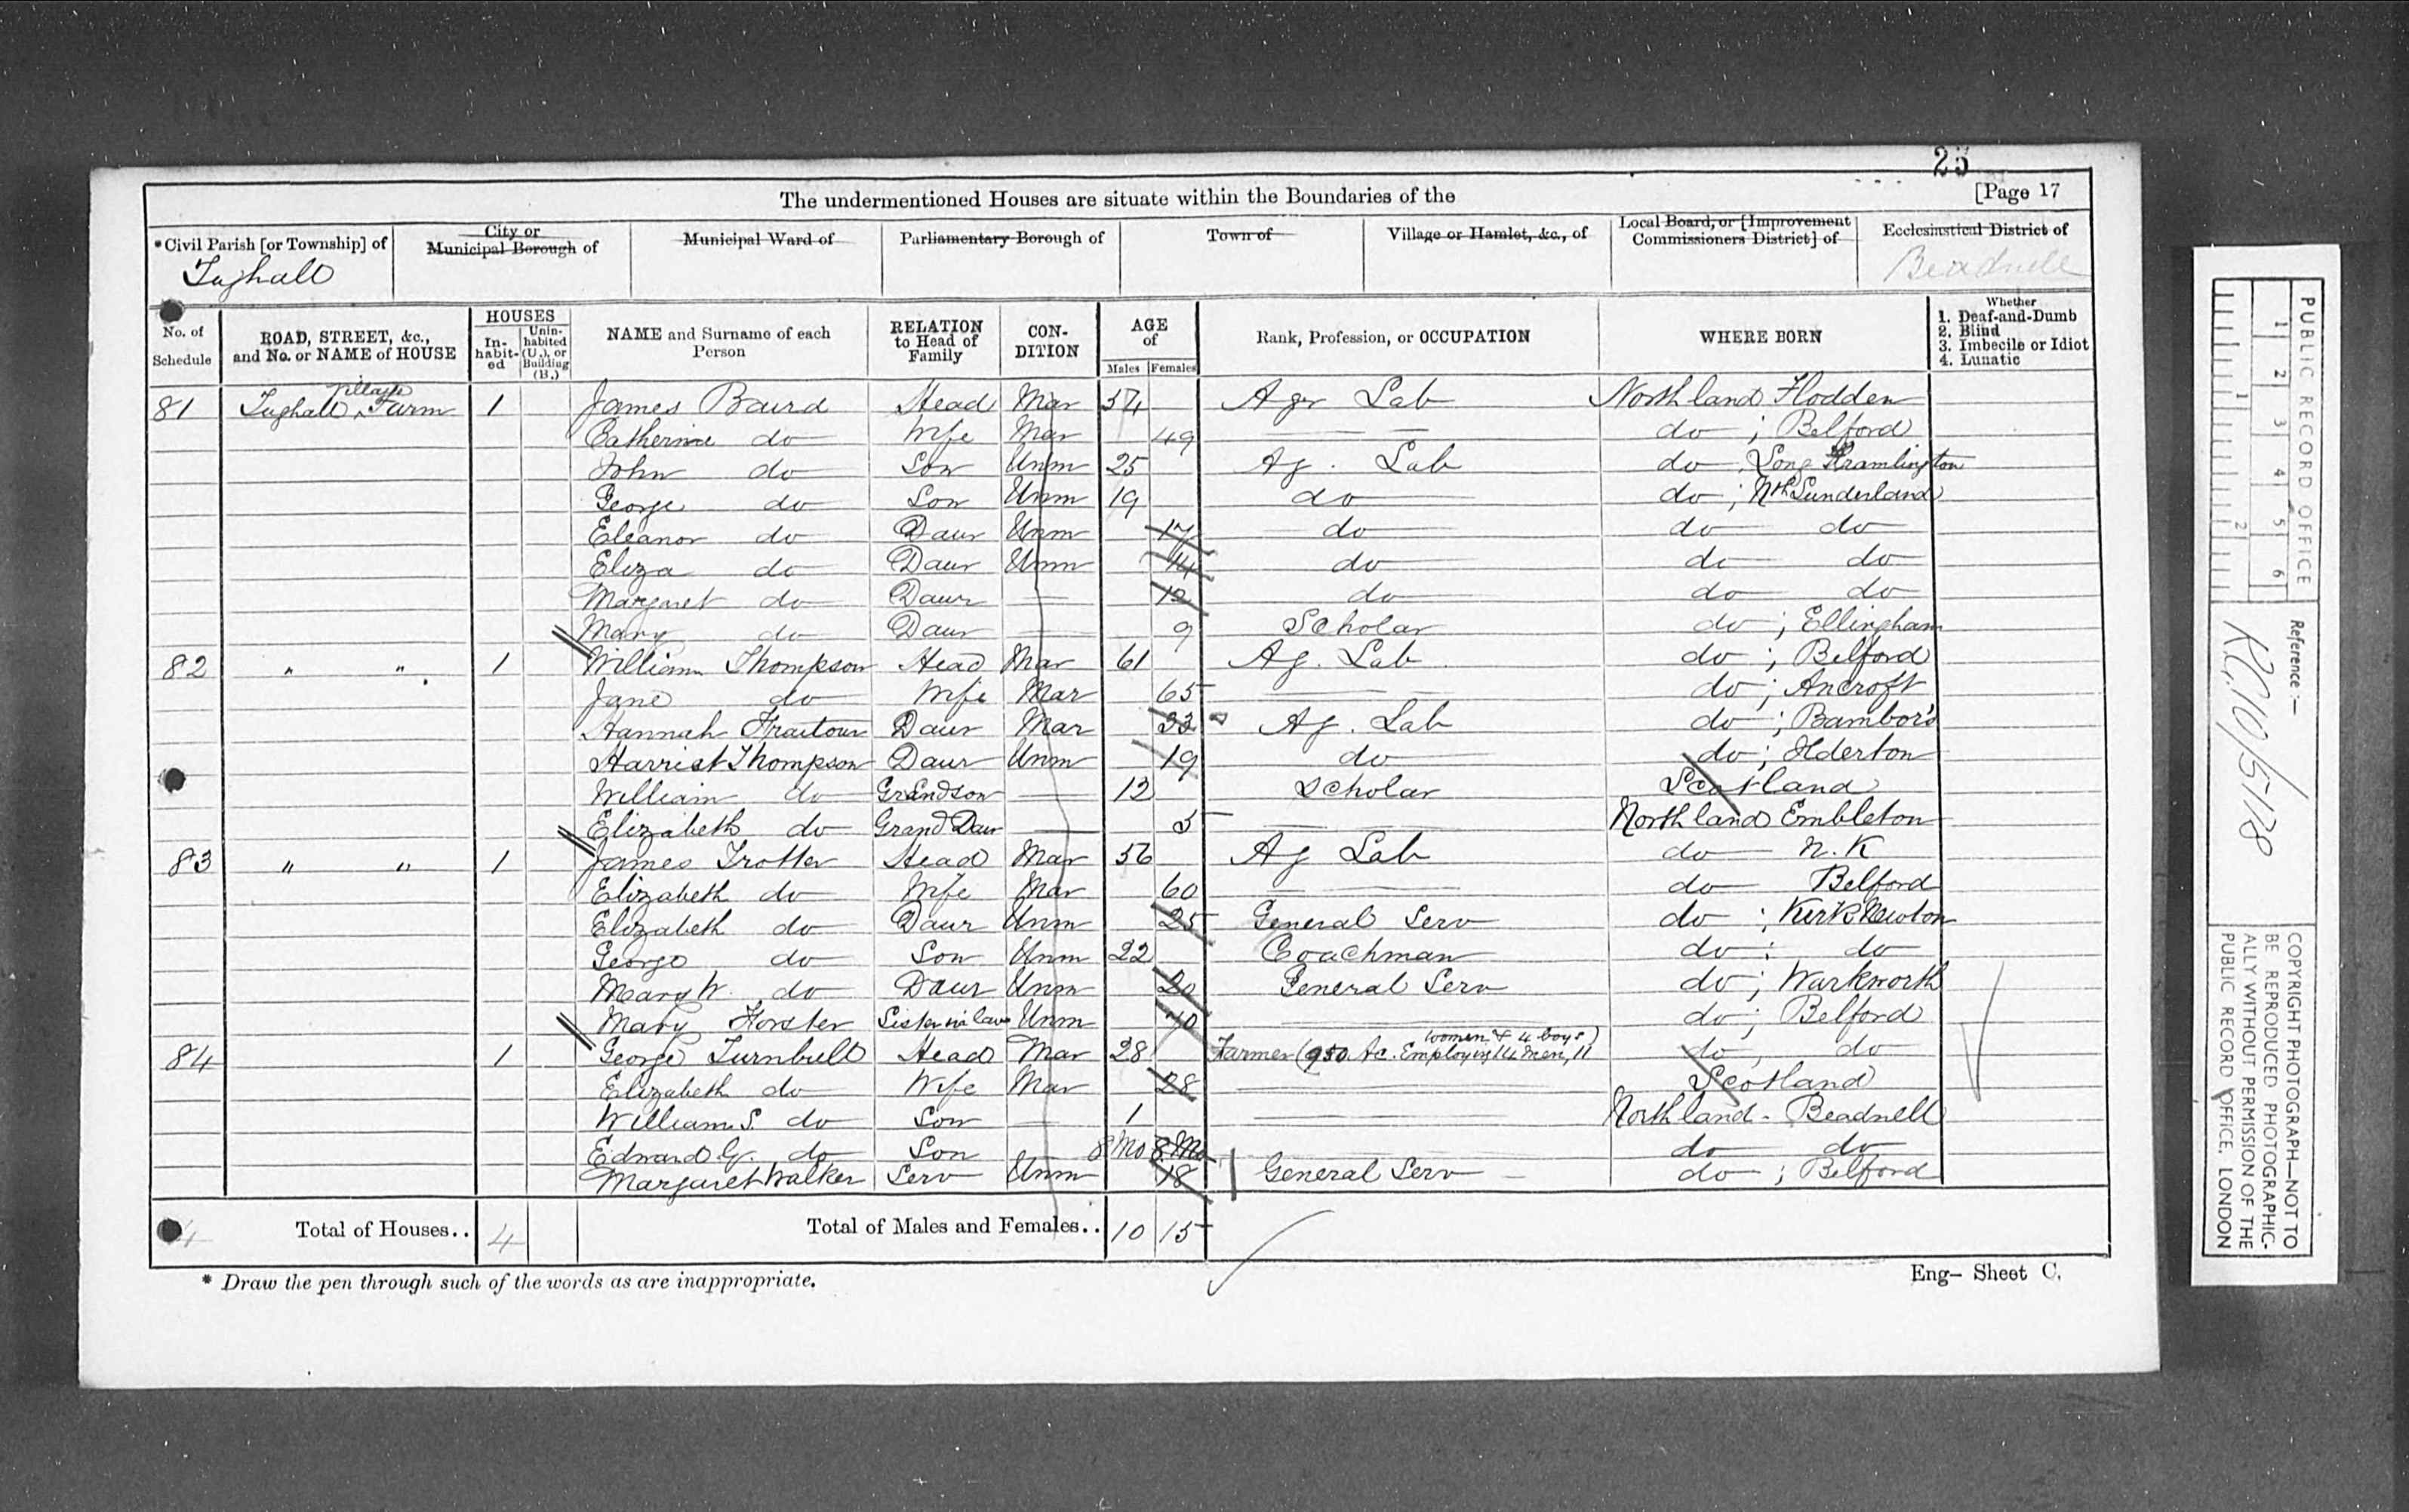 25
The undermentioned Houses are situate within the Boundaries of the [Page 17
*Civil Parish [or Township] of
Tughall
City or Municipal Borough of
Municipal Ward of
Parliamentary Borough of
Town of
Village or Hamlet, &c., of
Local Board, or [Improvement Commissioners District] of
Ecclesiastical District of
Beadnell
No. of Schedule
ROAD, STREET, &c., and No. or NAME of HOUSE
HOUSES
In-habit-ed
Unin-habited (U.), or Building (B.)
NAME and Surname of each Person
RELATION to Head of Family
CON-DITION
AGE of
Males Females
Rank, Profession, or OCCUPATION
WHERE BORN
Whether
1. Deaf-and-Dumb
2. Blind
3. Imbecile or Idiot
4. Lunatic
81 Tughall Village Farm 1 James Baird Head Mar 54 Agr Lab Northland Flodden
Catherine do Wife Mar 49 do ; Belford
John do Son Unm 25 Ag. Lab do ; Long Framlington
George do Son Unm 19 do do ; Nth Sunderland
Eleanor do Daur Unm 17 do do do
Eliza do Daur Unm 14 do do do
Margaret do Daur 12 do do do
Mary do Daur 9 Scholar do ; Ellingham
82 " " 1 William Thompson Head Mar 61 Ag. Lab do ; Belford
Jane do Wife Mar 65 do ; Ancroft
Hannah Daur Mar 33 Ag. Lab do ; Bambor's
Harriet Thompson Daur Unm 19 do do ; Ilderton
William do Grandson 12 Scholar Scotland
Elizabeth do Grand Daur 5 Northland Embleton
83 " " 1 James Trotter Head Mar 56 Ag Lab do N.K
Elizabeth do Wife Mar 60 do Belford
Elizabeth do Daur Unm 25 General Serv do ; Kirk Newton
George do Son Unm 22 Coachman do : do
Mary W. do Daur Unm 20 General Serv do ; Warkworth
Mary Forster Sister in law Unm do ; Belford
84 1 George Turnbull Head Mar 28 Farmer (950 Ac. Employing 14 Men, 11 women & 4 boys) do , do
Elizabeth do Wife Mar 28 Scotland
William S. do Son 1 Northland - Beadnell
Edward G. do Son 8 Mo 8 Mo do do
Margaret Walker Serv Unm 18 General Serv do ; Belford
4 Total of Houses.. 4 Total of Males and Females.. 10 15
* Draw the pen through such of the words as are inappropriate.
Eng- Sheet C.
PUBLIC RECORD OFFICE
1 2 3 4 5 6
1 2
Reference :-
RG 10/5178
COPYRIGHT PHOTOGRAPH—NOT TO
BE REPRODUCED PHOTOGRAPHIC-
ALLY WITHOUT PERMISSION OF THE
PUBLIC RECORD OFFICE, LONDON